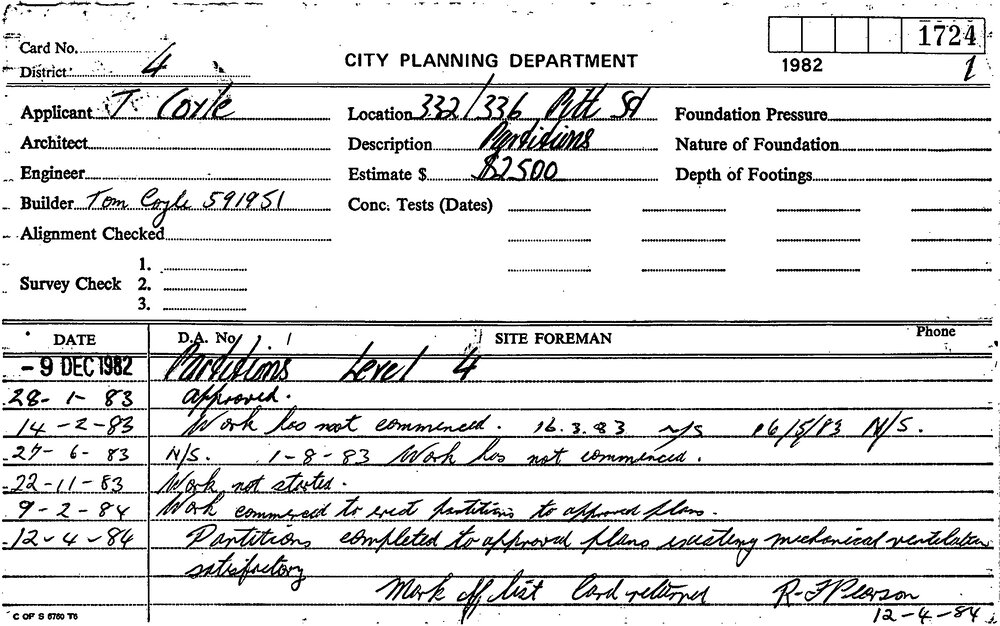 1724
Card No.
1982
1
District 4
CITY PLANNING DEPARTMENT
Applicant T Coyle
Location 332/336 Pitt St
Foundation Pressure
Architect
Description Partitions
Nature of Foundation
Engineer
Estimate $ $2500
Depth of Footings
Builder Tom Coyle 591951
Conc. Tests (Dates)
Alignment Checked
Survey Check 1.
2.
3.
DATE D.A. No. SITE FOREMAN Phone
- 9 DEC 1982 Partitions Level 4
28-1-83 approved.
14-2-83 Work has not commenced. 16.3.83 N/S 16/5/83 N/S.
27-6-83 N/S. 1-8-83 Work has not commenced.
22-11-83 Work not started.
9-2-84 Work commenced to erect partitions to approved plans.
12-4-84 Partitions completed to approved plans existing mechanical ventilation
satisfactory
Mark off list Card returned R-F Pearson
12-4-84
C OF S 6760 T6